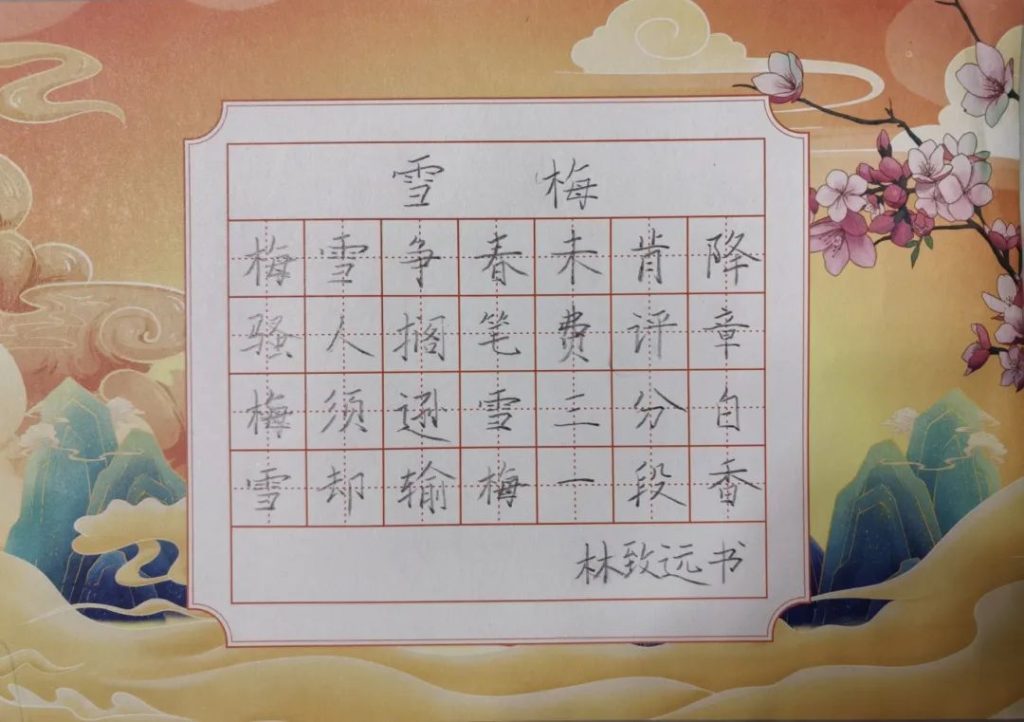 雪梅
梅雪争春未肯降
骚人搁笔费评章
梅须逊雪三分白
雪却输梅一段香
林致远书